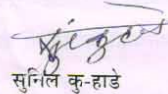 सुनिल कु-हाडे